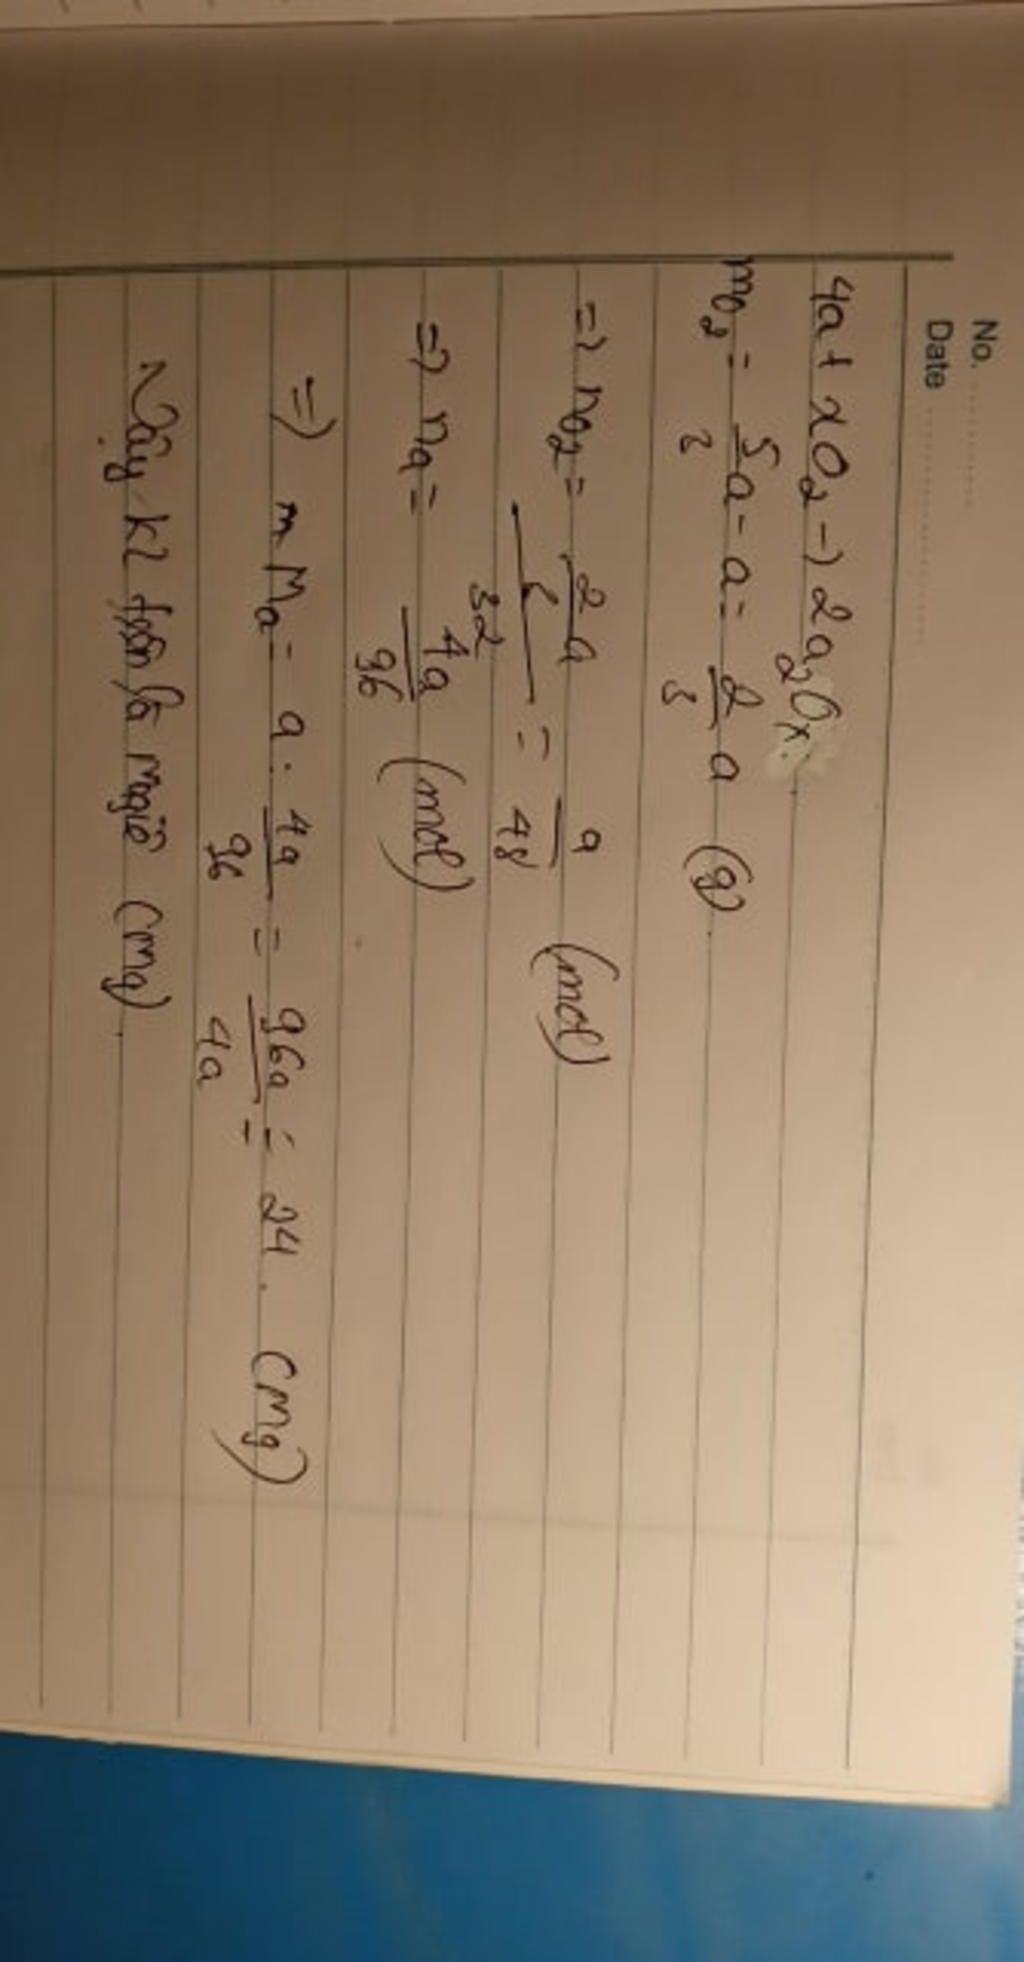 No.
Date
4a + xO2 -> 2a2Ox.
mO2 = 5/3 a - a = 2/3 a (g).
=> nO2 = 2/3 a / 32 = a/48 (mol)
=> na = 4a/96 (mol)
=> m Ma = a : 4a/96 = 96a/4a = 24. (Mg)
Vậy kl trên là magiê (Mg).